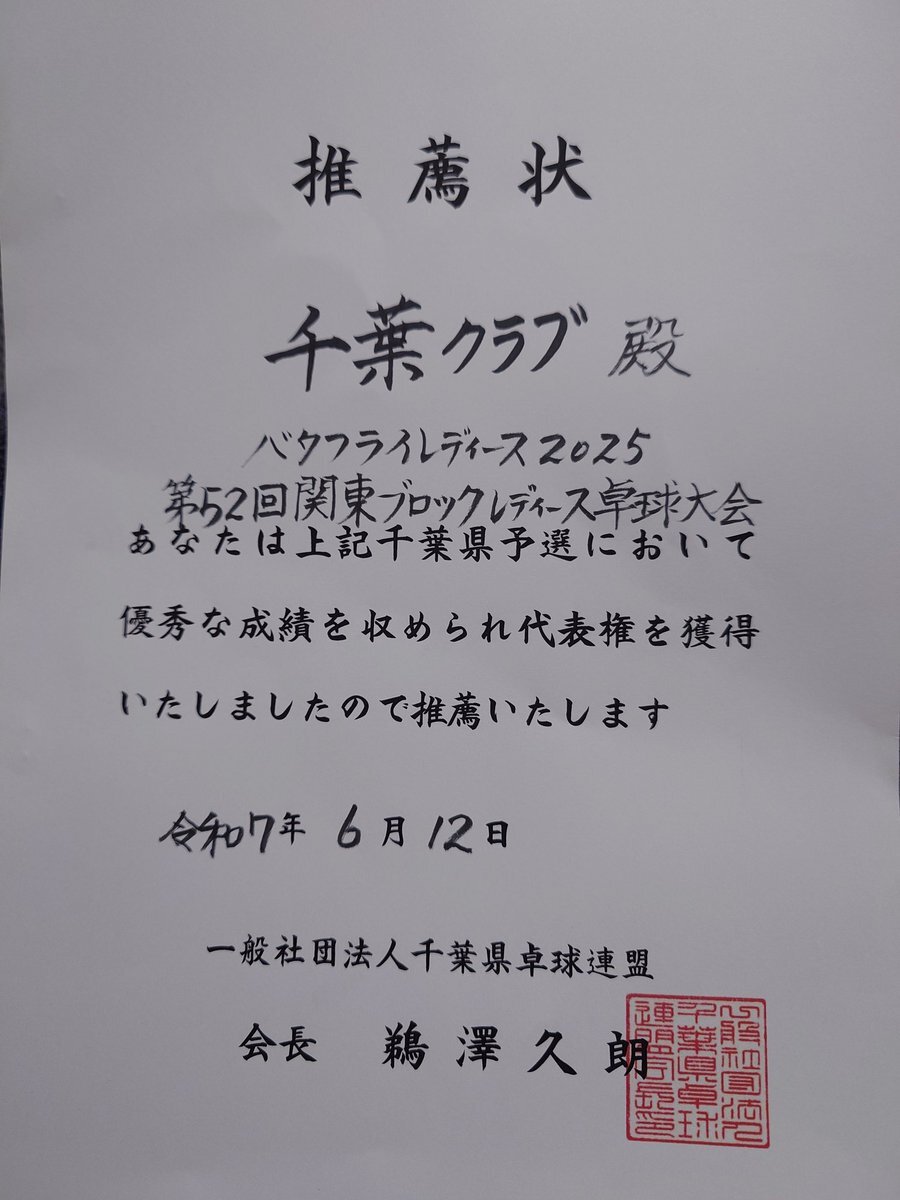 推薦状
千葉クラブ 殿
バタフライレディース2025
第52回関東ブロックレディース卓球大会
あなたは上記千葉県予選において
優秀な成績を収められ代表権を獲得
いたしましたので推薦いたします
令和7年 6月12日
一般社団法人千葉県卓球連盟
会長 鵜澤久朗
一般社団法人千葉県卓球連盟会長之印